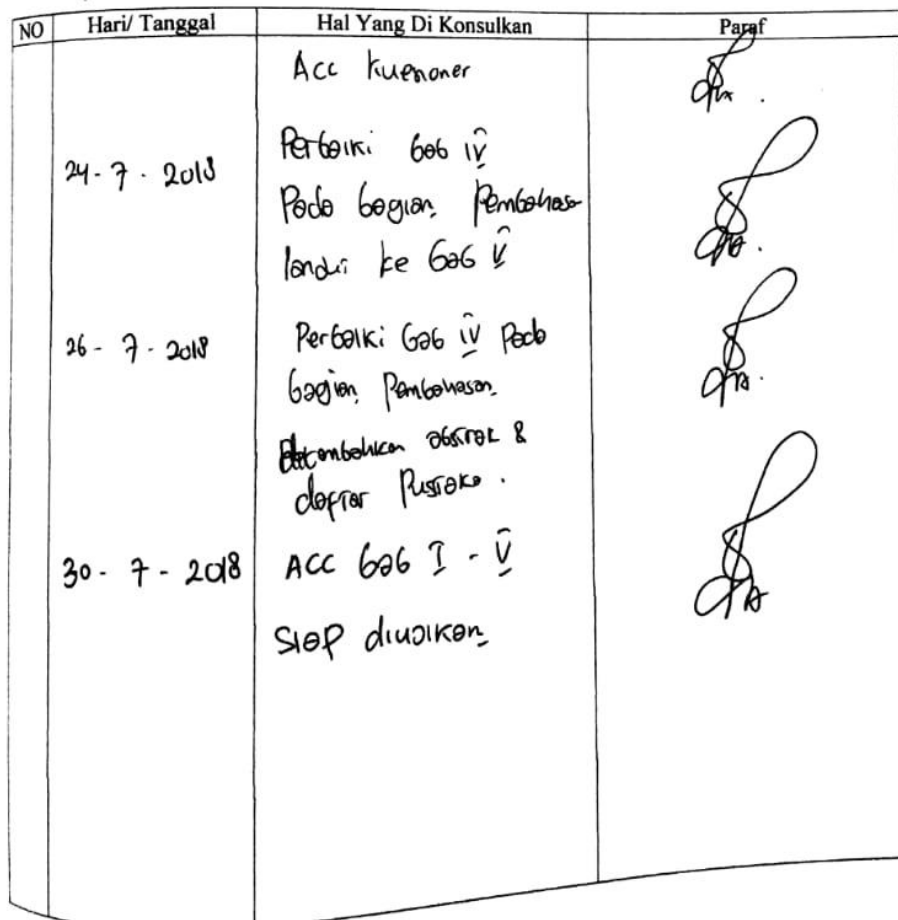 NO Hari/ Tanggal Hal Yang Di Konsulkan Paraf
Acc kuesioner
24 - 7 - 2018 Perbaiki bab IV
Pada bagian Pembahasan
lanjut ke bab V
26 - 7 - 2018 Perbaiki bab IV Pada
bagian Pembahasan
abstrak &
daftar Pustaka.
30 - 7 - 2018 ACC bab I - V
Siap diujikan